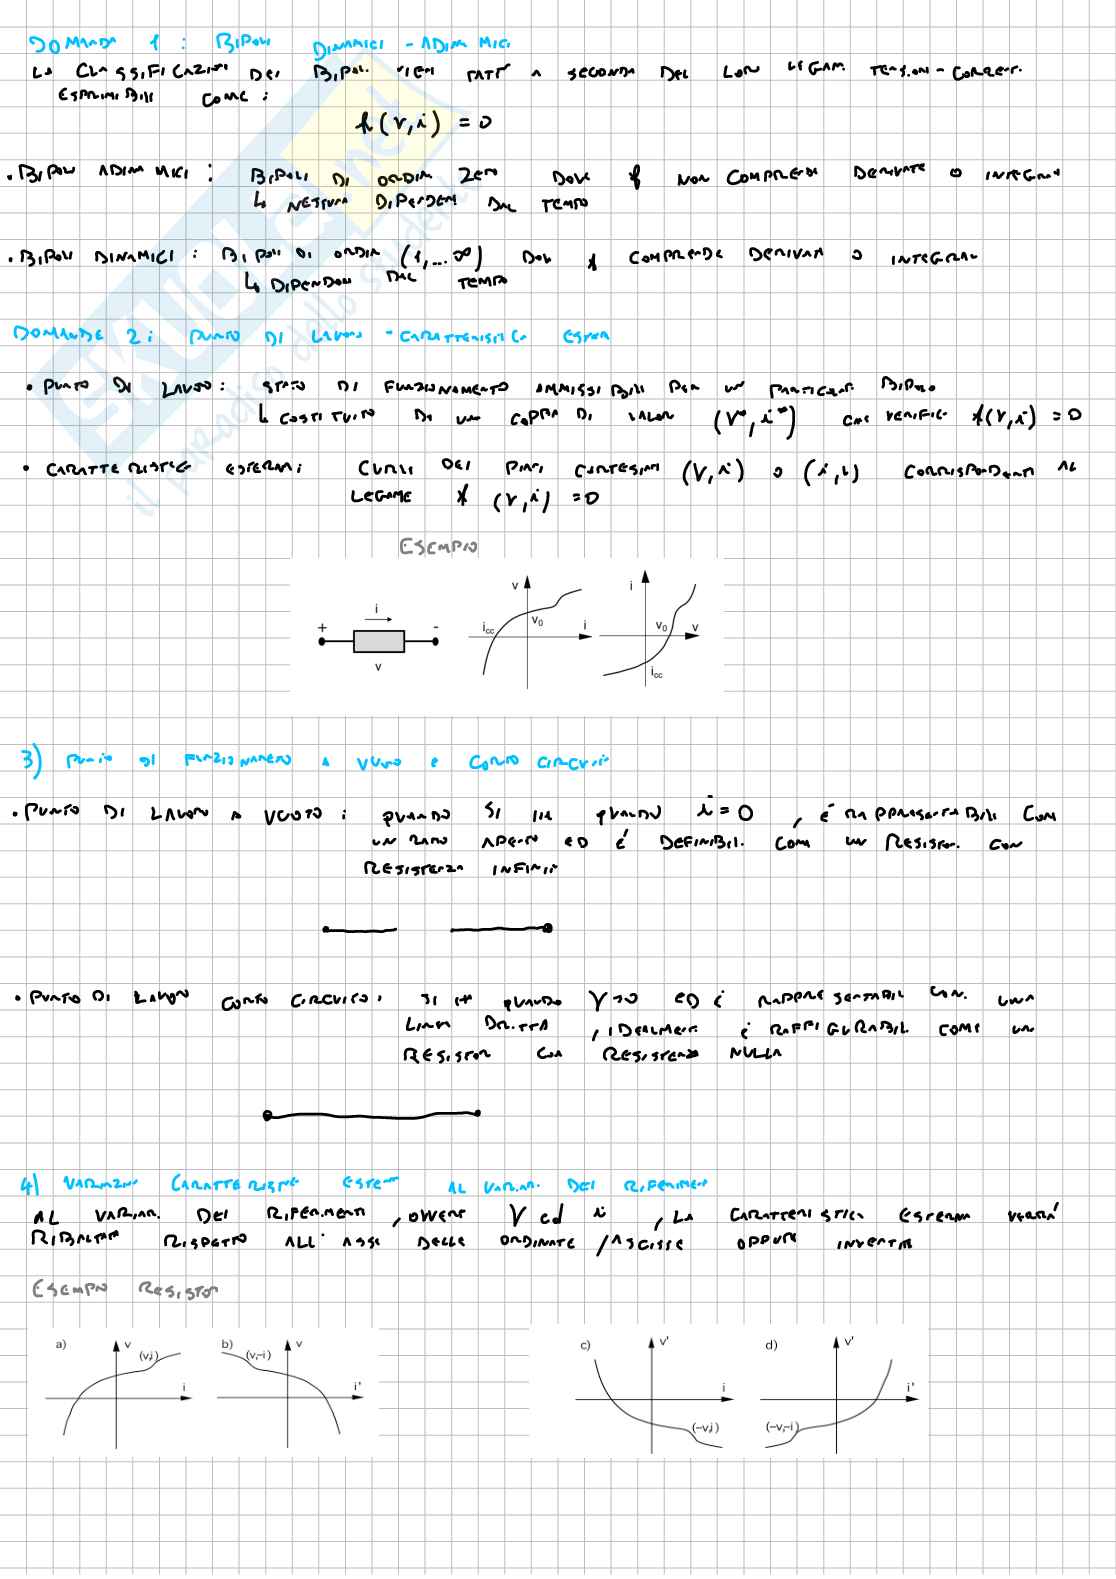 DOMANDA 1 : BIPOLI DINAMICI - ADINAMICI
LA CLASSIFICAZION DEI BIPOLI VIEN FATT A SECONDA DEL LORO LEGAM TENSION - CORRENT.
ESPRIMIBILI COME :
f(v,i) = 0
• BIPOLI ADINAMICI : BIPOLI DI ORDIN ZERO DOVE f NON COMPRENDE DERIVATE O INTEGRALI
↳ NESSUNA DIPENDENZA DAL TEMPO
• BIPOLI DINAMICI : BIPOLI DI ORDIN (1,...∞) DOVE f COMPRENDE DERIVATE O INTEGRALI
↳ DIPENDONO DAL TEMPO
DOMANDE 2 : PUNTO DI LAVORO - CARATTERISTICA ESTERNA
• PUNTO DI LAVORO : STATO DI FUNZIONAMENTO AMMISSIBILE PER UN PARTICOLARE BIPOLO
↳ COSTITUITO DA UNA COPPIA DI VALORI (V*, i*) CHE VERIFICA f(v,i) = 0
• CARATTERISTICA ESTERNA : CURVE DEI PIANI CARTESIANI (V,i) O (i,V) CORRISPONDENTI AL
LEGAME f (v,i) = 0
ESEMPIO
v i i
+ - i_cc v_0 i v_0 v
v i_cc
3) PUNTO DI FUNZIONAMENTO A VUOTO e CORTO CIRCUITO
• PUNTO DI LAVORO A VUOTO : QUANDO SI HA QUANDO i = 0 , É RAPPRESENTABILE COM
UN RAMO APERTO ED É DEFINIBIL. COM UN RESISTOR. CON
RESISTENZA INFINITA
• PUNTO DI LAVORO CORTO CIRCUITO : SI HA QUANDO V=0 ED É RAPPRESENTABIL CON. UNA
LINEA DRITTA , IDEALMENTE É RAFFIGURABIL COME UN
RESISTOR CON RESISTENZA NULLA
4) VARIAZIONE CARATTERISTICA ESTERNA AL VARIAR. DEI RIFERIMENTI
AL VARIAR. DEI RIFERIMENTI , OVVERO V ed i , LA CARATTERISTICA ESTERNA VERRÀ
RIBALTATA RISPETTO ALL' ASSE DELLE ORDINATE / ASCISSE OPPURE INVERTITA
ESEMPIO RESISTOR
a) v (v,i) i b) v (v,-i) i' c) v' i (-v,i) d) v' i' (-v,-i)